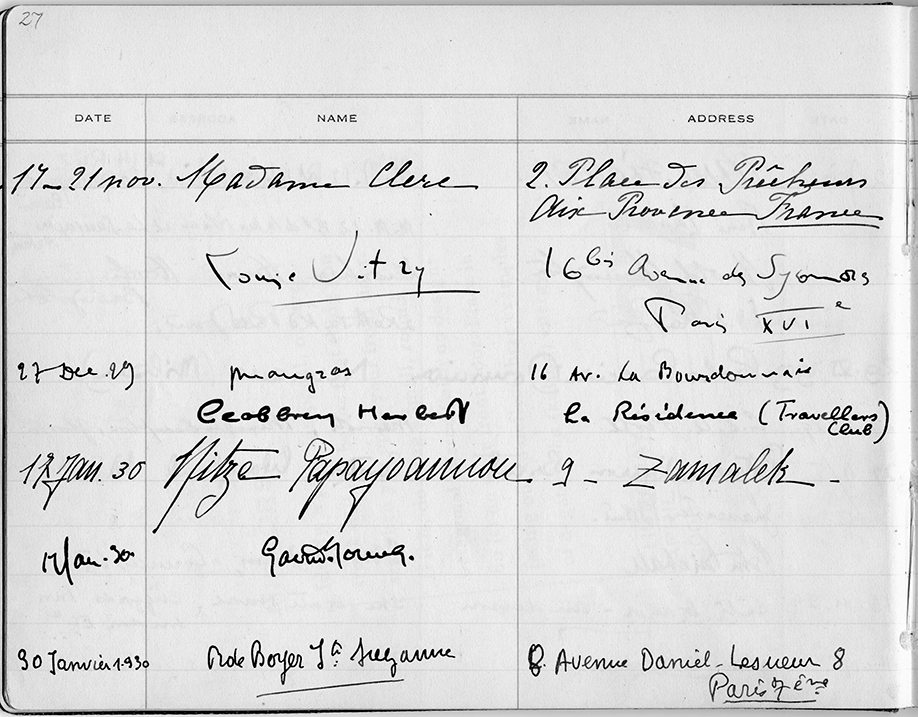 27
DATE NAME ADDRESS
17-21 nov. Madame Clerc 2. Place des Prêcheurs
Aix Provence France
Vitry 16 bis Avenue de
Paris XVI e
27 Dec. 29 16 Av. La Bourdonnais
Herbert La Résidence (Travellers
Club)
12 Jan. 30 Nitza Papayoannou 9 - Zamalek -
Jan. 30
30 Janvier 1930 R de Boyer Ste Suzanne 8 Avenue Daniel-Lesueur 8
Paris 7ème